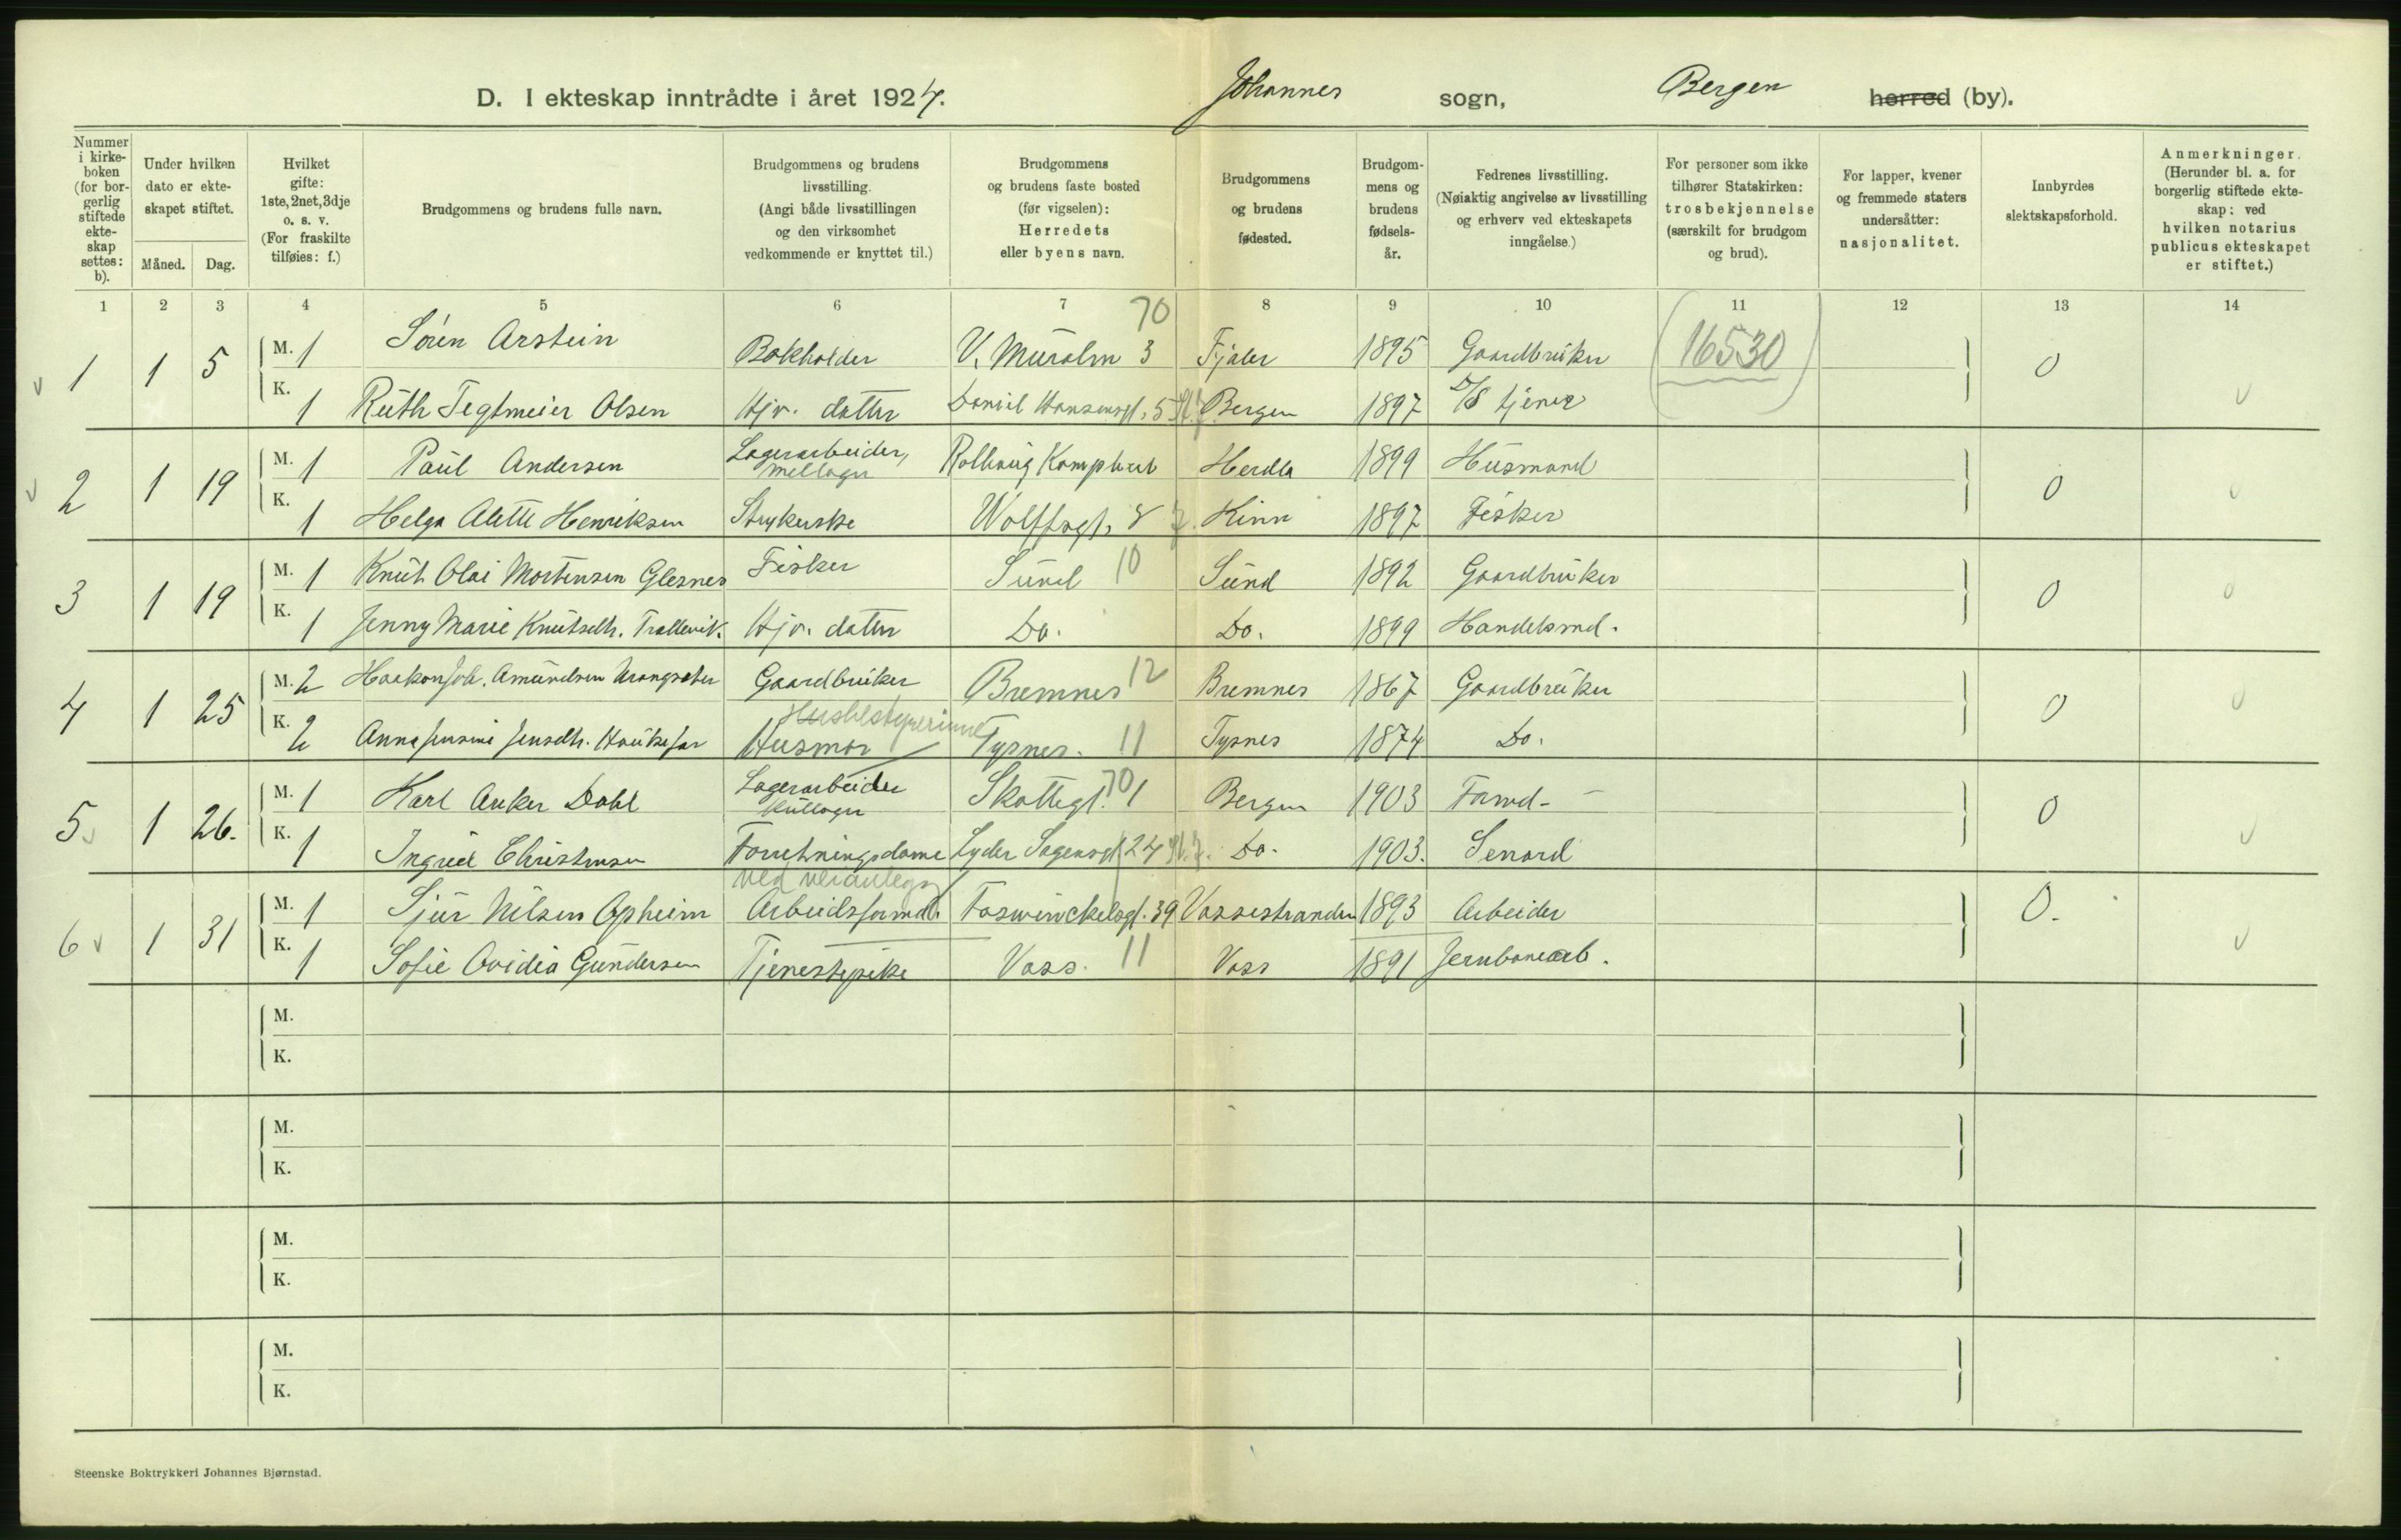 D. I ekteskap inntrådte i året 1924. Johannes sogn, Bergen herred (by).
Nummer i kirkeboken (for borgerlig stiftede ekteskap settes: b).
Under hvilken dato er ekteskapet stiftet.
Måned. Dag.
Hvilket gifte: 1ste, 2net, 3dje o. s. v. (For fraskilte tilføies: f.)
Brudgommens og brudens fulle navn.
Brudgommens og brudens livsstilling. (Angi både livsstillingen og den virksomhet vedkommende er knyttet til.)
Brudgommens og brudens faste bosted (før vigselen): Herredets eller byens navn.
Brudgommens og brudens fødested.
Brudgommens og brudens fødselsår.
Fedrenes livsstilling. (Nøiaktig angivelse av livsstilling og erhverv ved ekteskapets inngåelse.)
For personer som ikke tilhører Statskirken: trosbekjennelse (særskilt for brudgom og brud).
For lapper, kvener og fremmede staters undersåtter: nasjonalitet.
Innbyrdes slektskapsforhold.
Anmerkninger. (Herunder bl. a. for borgerlig stiftede ekteskap: ved hvilken notarius publicus ekteskapet er stiftet.)
1 2 3 4 5 6 7 8 9 10 11 12 13 14
70
1 1 5 M. 1 Søren Arstein Bokholder V. Muralm 3 Fjaler 1895 Gaardbruker (16530) 0
K. 1 Ruth Tegtmeier Olsen Hjv. datter Daniel Hansensgt. 5 Bergen 1897 D/S tjener
2 1 19 M. 1 Paul Andersen Lagerarbeider, mellager Kamphust Herdla 1899 Husmand 0
K. 1 Helga Alette Henriksen Strykerske Wolffsgt. 8 Kinn 1897 Fisker
3 1 19 M. 1 Knut Olai Mortensen Glesnes Fisker Sund 10 Sund 1892 Gaardbruker 0
K. 1 Jenny Marie Knutsdtr. Trellevik. Hjv. datter Do. Do. 1899 Handelsmd.
4 1 25 M. 2 Haakon Joh. Amundsen Vrangsæter Gaardbruker Bremnes 12 Bremnes 1867 Gaardbruker 0
Husbestyrerinne
K. 2 Anna Jensine Jensdtr. Haukefær Husmor Tysnes. 11 Tysnes 1874 Do.
5 1 26. M. 1 Karl Anker Dahl Lagerarbeider kullager Skottegt. 1 70 Bergen 1903 Formd. 0
K. 1 Ingrid Christensen Forretningsdame Lyder Sagensgt 24 Do. 1903. Senard
ved veianlegg
6 1 31 M. 1 Sjur Nilsen Opheim Arbeidsformd. Foswinckelsgt. 39 Vossestranden 1893 Arbeider 0.
K. 1 Sofie Ovidia Gundersen Tjenestepike Voss. 11 Voss 1891 Jernbanearb.
M.
K.
M.
K.
M.
K.
M.
K.
Steenske Boktrykkeri Johannes Bjørnstad.